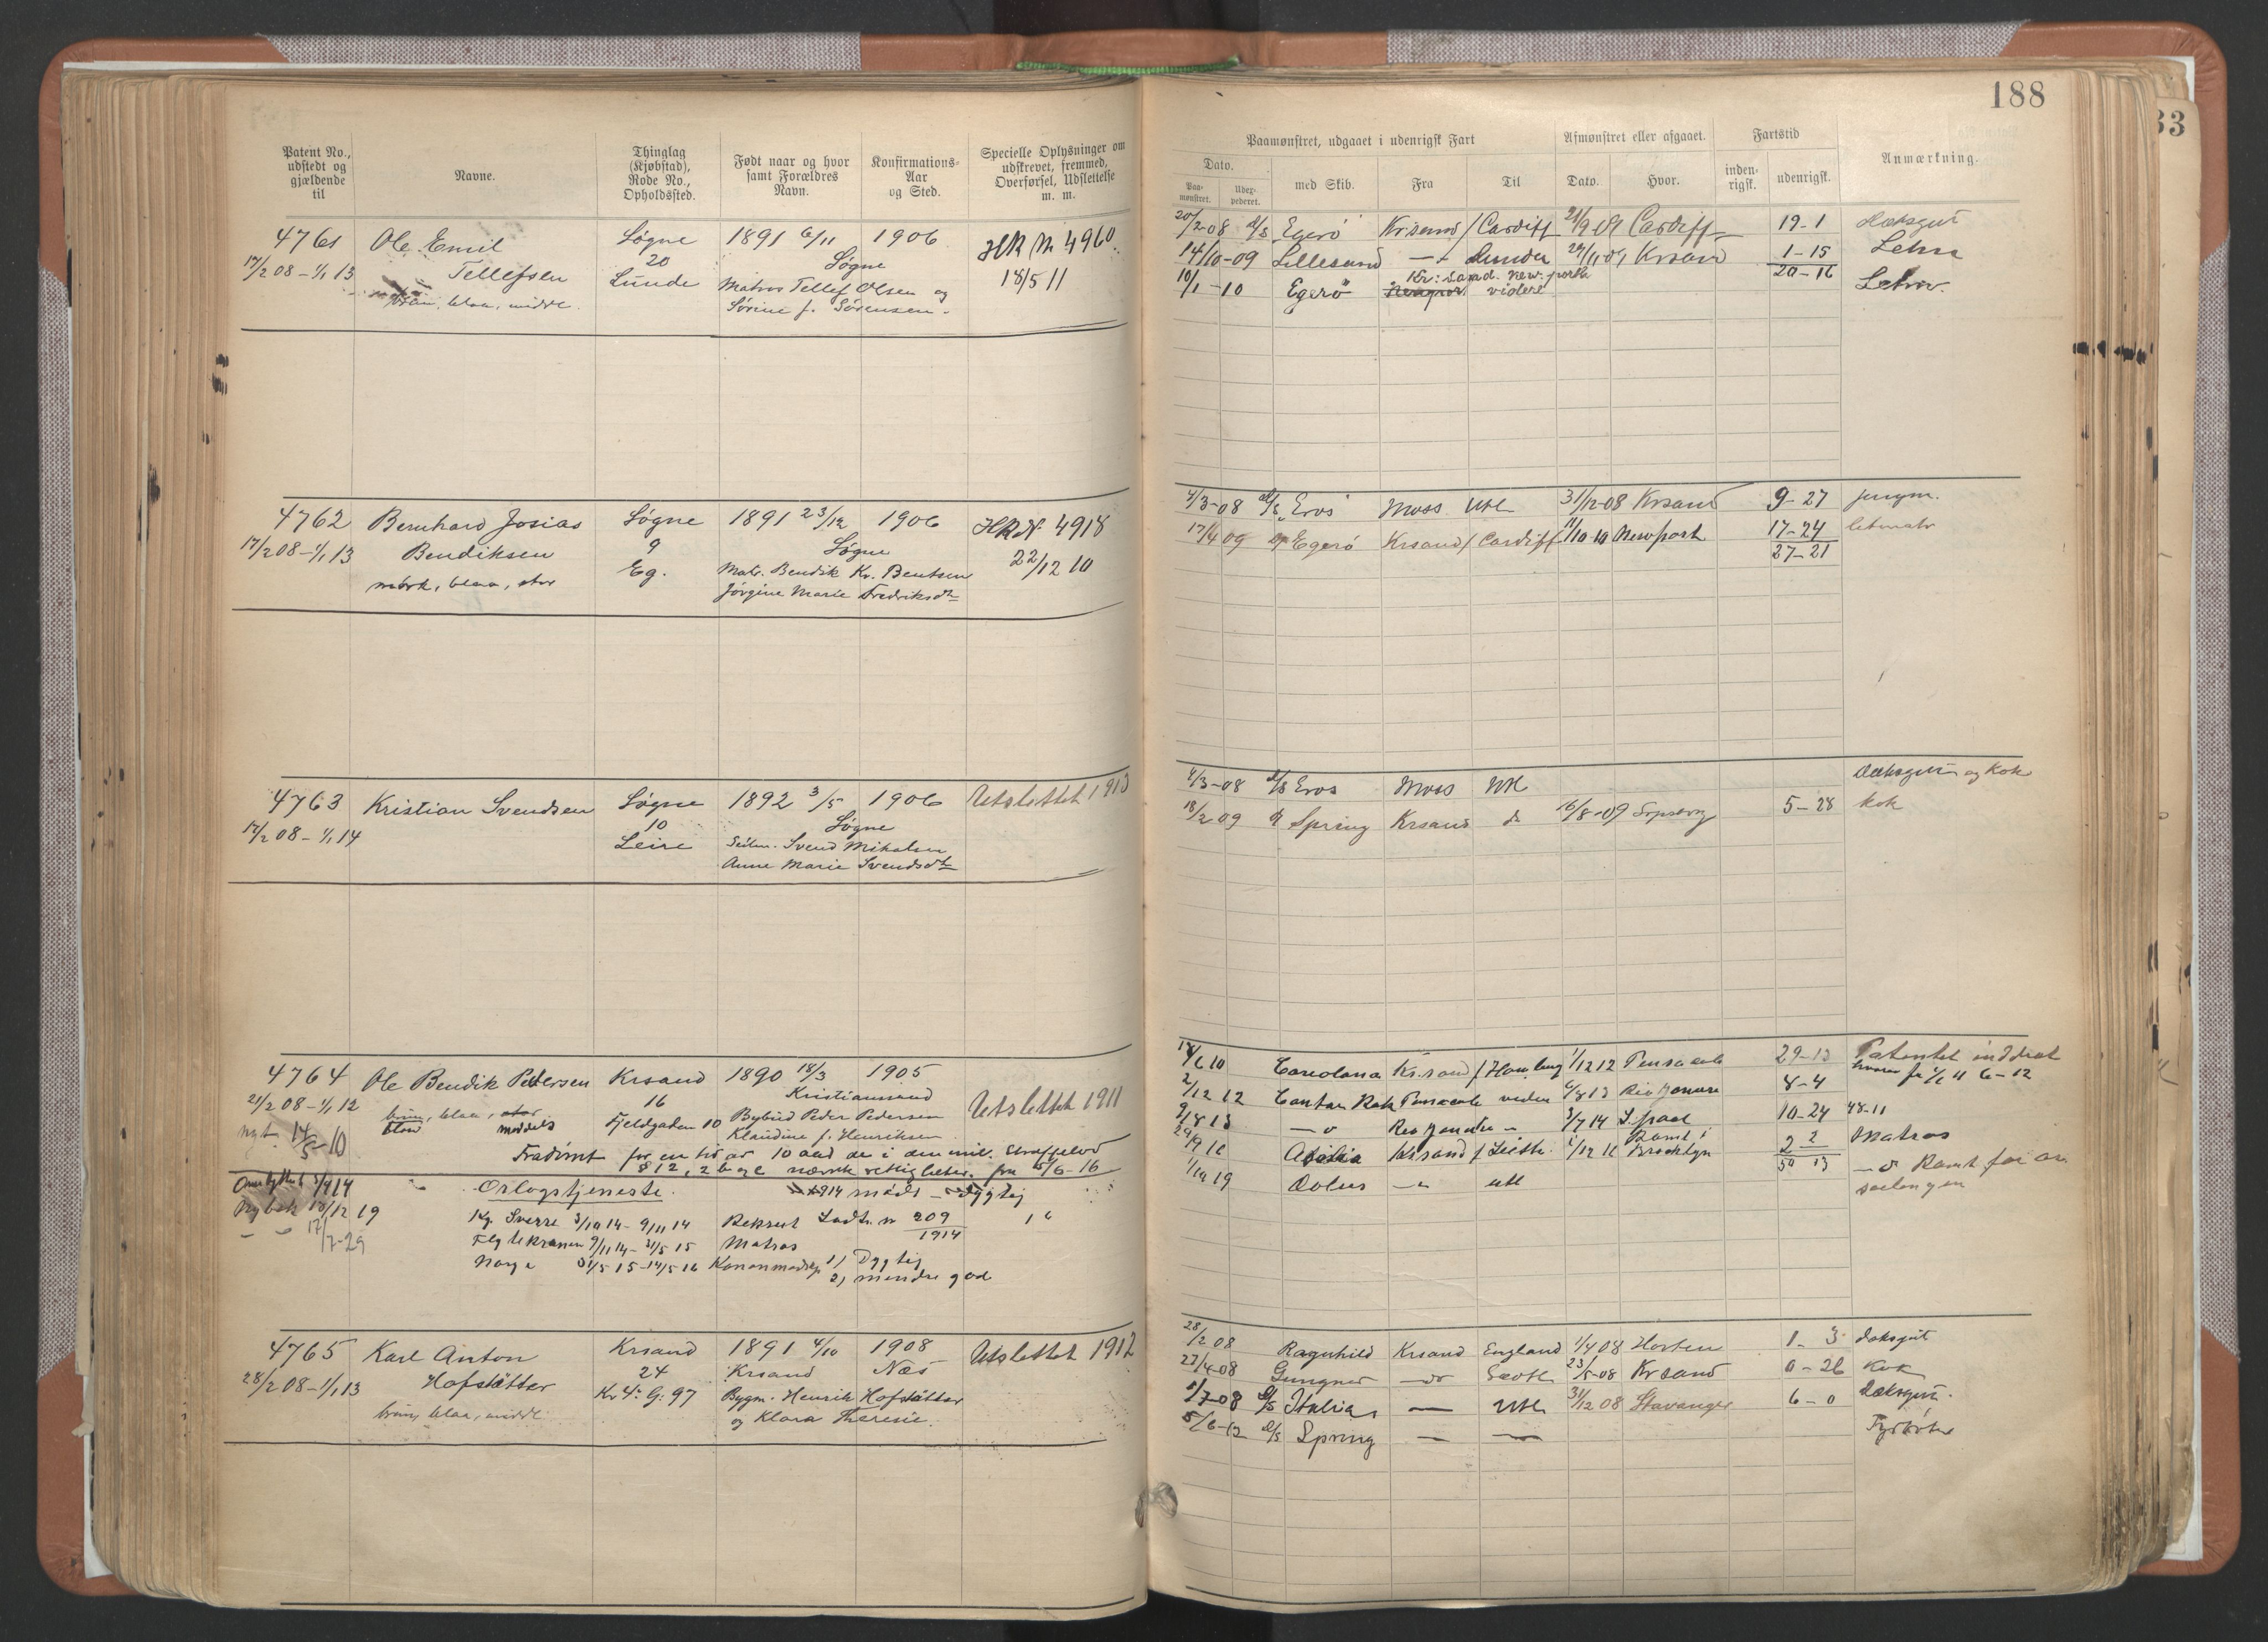 188
33
Patent No., udstedt og gjældende til
Navne.
Thinglag (Kjøbstad), Rode No., Opholdssted.
Født naar og hvor samt Forældres Navn.
Konfirmations-Aar og Sted.
Specielle Oplysninger om udskrevet, fremmed, Overførsel, Udslettelse m. m.
Paamønstret, udgaaet i udenrigsk Fart
Afmønstret eller afgaaet.
Fartstid
Anmærkning.
Dato.
Paa-mønstret.
med Skib.
Fra
Til
Dato.
Hvor.
inden-rigsk.
udenrigsk.
4761 Ole Emil Søgne 1891 6/11 1906 HR No 4960
17/2 08 – 1/1 13 Tellefsen 20 Søgne 18/5 11
Lunde Matros Tellef Olsen og
brun, blaa, middl. Sørine f. Sørensen.
20/2-08 d/s Egerø Kr.sand / Cardiff 21/9 09 Cardiff 19-1 Dæksgut
14/10-09 Lillesand Krsand 1-15 Letm
20-16
10/1-10 Egerø Kr: sand. New-port videre Letm.
4762 Bernhard Josias Søgne 1891 23/12 1906 HR No 4918
17/2 08 – 1/1 13 Bendiksen 9 Søgne 22/12 10
mørk, blaa, stor Eg. Matr. Bendik Kr. Bentsen
Jørgine Marie Fredriksdtr
4/3-08 d/s Eros Moss Utl 31/12-08 Krsand 9-27 jungm.
17/4 09 Egerø Krsand / Cardiff 11/10-10 Newport 17-24 letmatr
27-21
4763 Kristian Svendsen Søgne 1892 3/5 1906 Utslettet 1913
17/2 08 – 1/1 14 10 Søgne
Leire Svend Mikalsen
Anne Marie Svendsdtr
4/3-08 d/s Eros Moss Utl Dæksgut og Kok
18/2 09 Spring Krsand do 16/8-09 5-28 kok
4764 Ole Bendik Pedersen Krsand 1890 18/3 1905
21/2 08 – 1/1 12 16 Kristianssand Utslettet 1911
brun, blaa, stor middels Fjeldgaden 10 Bybud Peder Pedersen
nyt. 14/5-10 Klaudine f. Henriksen
Fradømt for en tid av 10 aar de i den mil. Straffelov
§ 12, 2 nævnte rettigheter. fra 15/6-16
Orlogstjeneste.
Sverre 3/10 14 – 9/11 14 Rekrut 209
1914
9/11 14 – 31/5 15 Matros
Norge 31/5 15 – 14/5 16 1) Dygtig
2) mindre god
18/6 10 Coriolanus Kr.sand / Hamburg 1/12 12 Pensacola 29-13 Patentet inddrat
2/12 12 Pensacola videre 6/8 13 Rio Janeiro 8-4
9/8 13 Rio Janeiro 3/7 14 10-24 48-11
Krsand / Leith 1/12 16 Brooklyn 2 2 Matros
50 13
1/10 19 Æolus utl
4765 Karl Anton Krsand 1891 4/10 1908 Utslettet 1912
28/2 08 – 1/1 13 Hofstätter 24 Krsand Næs
Kr 4: G: 97 Bygm. Henrik Hofstätter
brun, blaa, middl og Klara Theresie.
28/2 08 Ragnhild Krsand England 1/4 08 Horten 1-3 Dæksgut
27/4-08 Gungner 23/5-08 Krsand 0-26 Kok
1/7-08 d/s Italia Utl 31/12 08 Stavanger 6-0 Dæksgut.
5/6-12 d/s Spring Fyrbøter